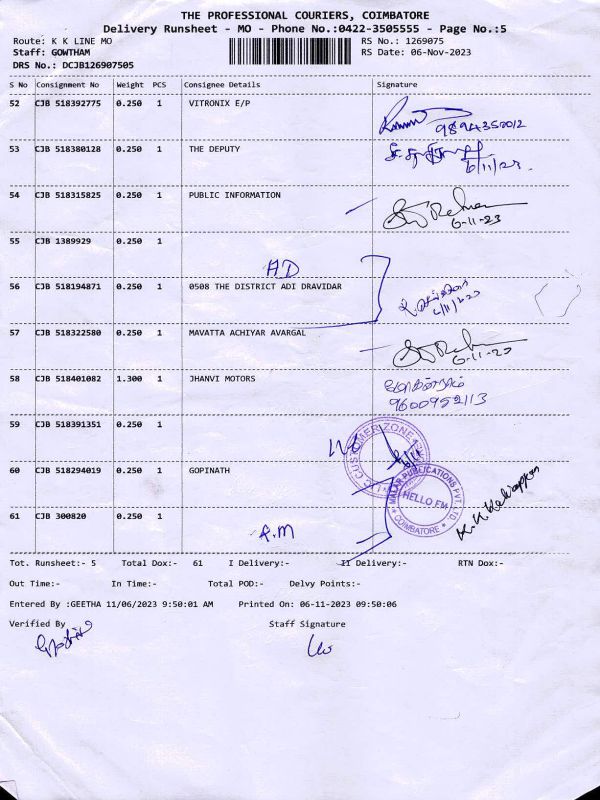 THE PROFESSIONAL COURIERS, COIMBATORE
Delivery Runsheet - MO - Phone No.:0422-3505555 - Page No.:5
Route: K K LINE MO RS No.: 1269075
Staff: GOWTHAM RS Date: 06-Nov-2023
DRS No.: DCJB126907505
S No Consignment No Weight PCS Consignee Details Signature
52 CJB 518392775 0.250 1 VITRONIX E/P
9894352012
53 CJB 518380128 0.250 1 THE DEPUTY
6/11/23
54 CJB 518315825 0.250 1 PUBLIC INFORMATION
6-11-23
55 CJB 1389929 0.250 1
AD
56 CJB 518194871 0.250 1 0508 THE DISTRICT ADI DRAVIDAR
6/11/23
57 CJB 518322580 0.250 1 MAVATTA ACHIYAR AVARGAL
6-11-23
58 CJB 518401082 1.300 1 JHANVI MOTORS
9600952113
59 CJB 518391351 0.250 1
CUSTOMER ZONE
60 CJB 518294019 0.250 1 GOPINATH
MALAR PUBLICATIONS PVT. LTD.
HELLO FM
COIMBATORE
61 CJB 300820 0.250 1
A.M
Tot. Runsheet:- 5 Total Dox:- 61 I Delivery:- II Delivery:- RTN Dox:-
Out Time:- In Time:- Total POD:- Delvy Points:-
Entered By :GEETHA 11/06/2023 9:50:01 AM Printed On: 06-11-2023 09:50:06
Verified By Staff Signature